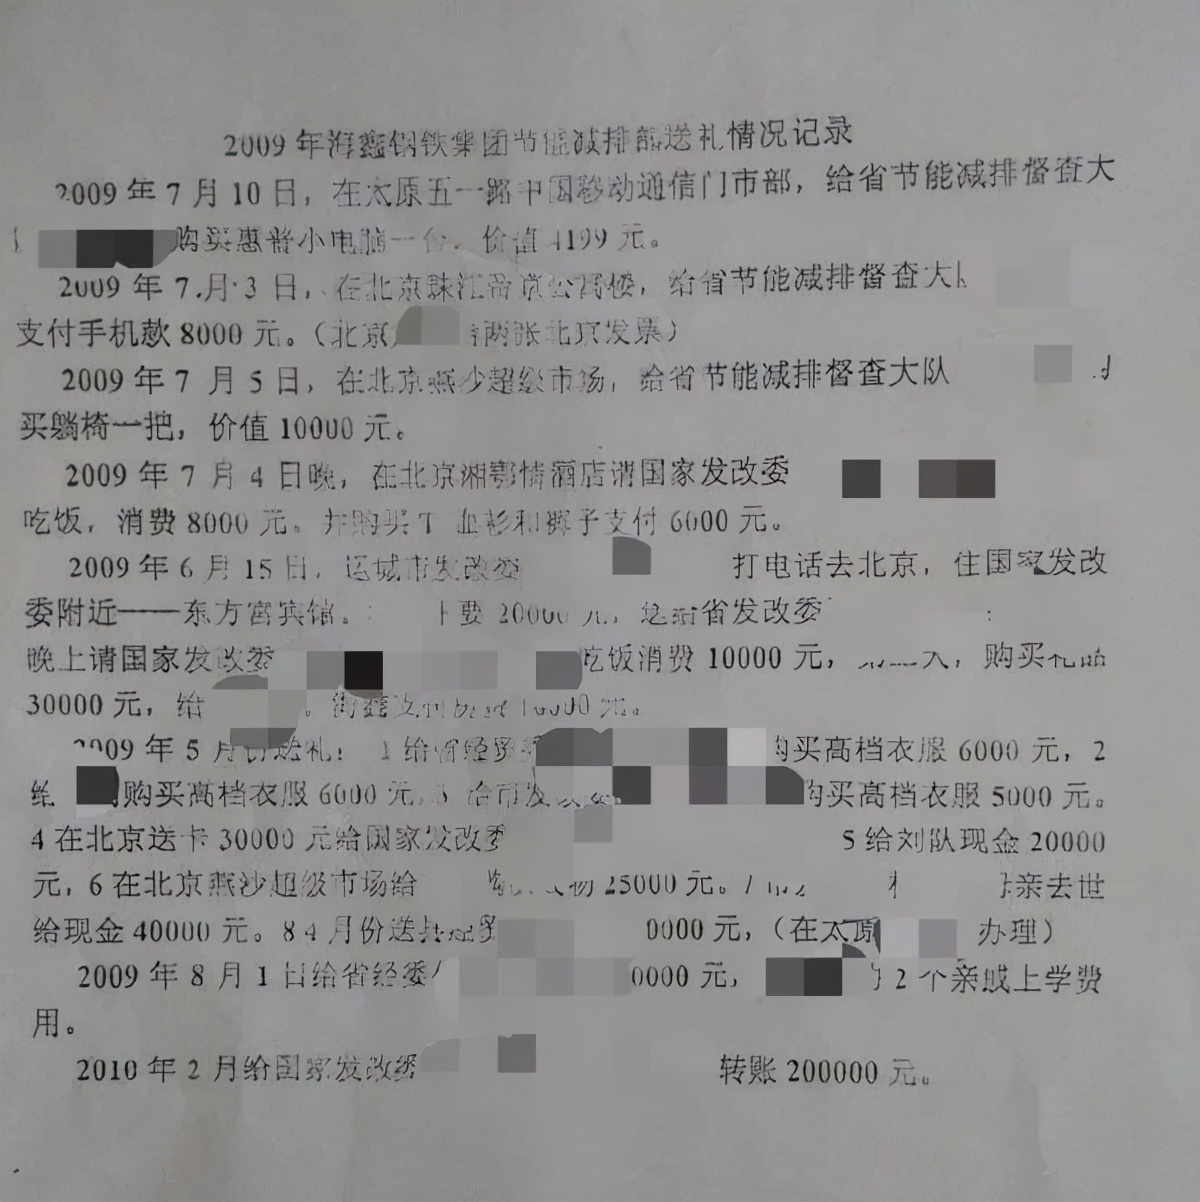 2009年海鑫钢铁集团节能减排部送礼情况记录
2009年7月10日，在太原五一路中国移动通信门市部，给省节能减排督查大
购买惠普小电脑一台，价值4199元。
2009年7月3日，在北京珠江帝京公寓楼，给省节能减排督查大
支付手机款8000元。（北京 两张北京发票）
2009年7月5日，在北京燕沙超级市场，给省节能减排督查大队
买躺椅一把，价值10000元。
2009年7月4日晚，在北京湘鄂情酒店请国家发改委
吃饭，消费8000元。并购买T恤衫和裤子支付6000元。
2009年6月15日，运城市发改委 打电话去北京，住国家发改
委附近——东方宫宾馆。 要20000元，送给省发改委
晚上请国家发改委 吃饭消费10000元， 购买礼品
30000元，给 海鑫支付
2009年5月份送礼：1给省经贸委 购买高档衣服6000元，2
给 购买高档衣服6000元，3给市发改委 购买高档衣服5000元。
4在北京送卡30000元给国家发改委 5给刘队现金20000
元，6在北京燕沙超级市场给 25000元。7 亲去世
给现金40000元。8 4月份送县经贸 0000元，（在太原 办理）
2009年8月1日给省经委 0000元， 2个亲戚上学费
用。
2010年2月给国家发改委 转账200000元。